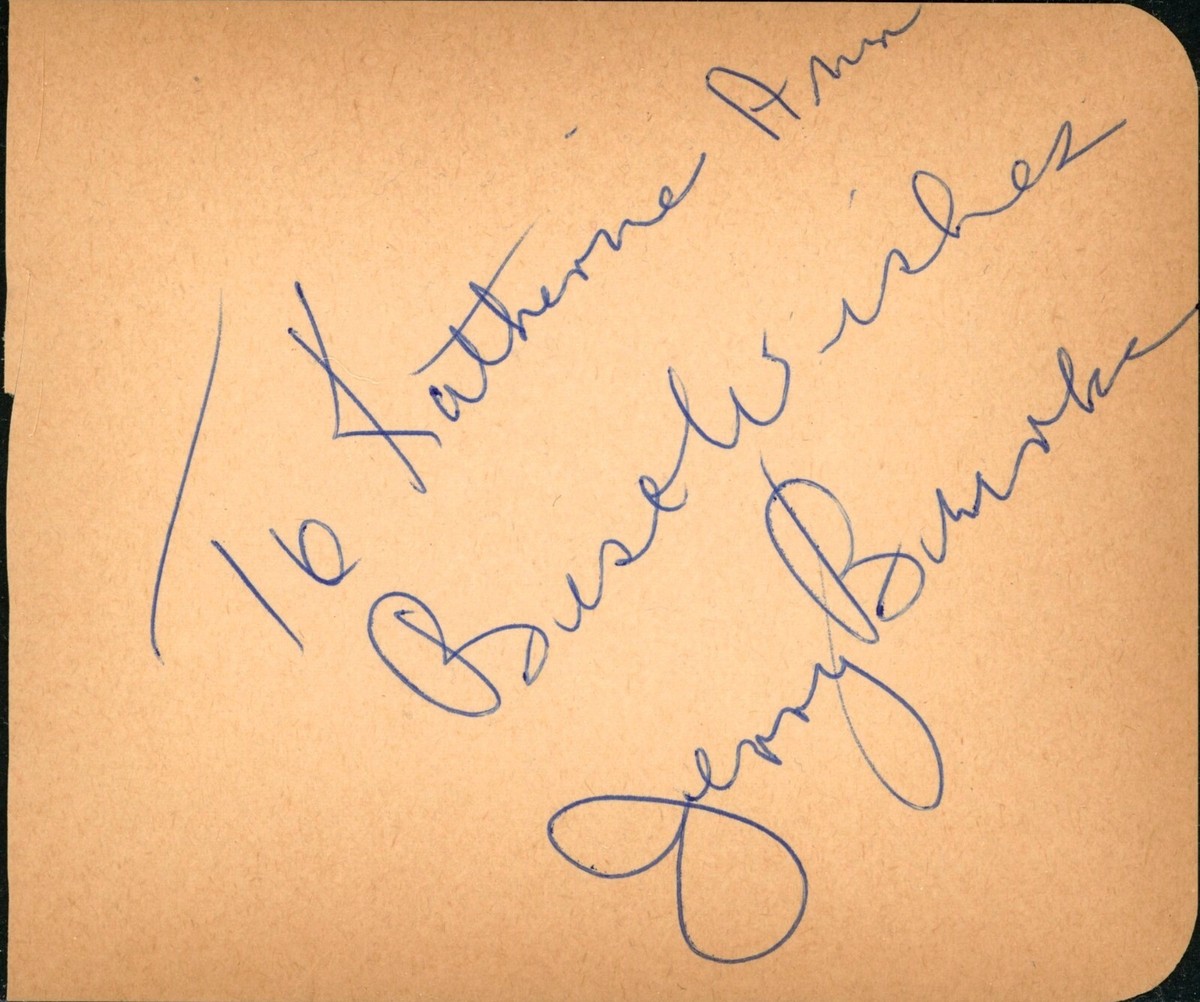 To Katherine Ann
Best Wishes
Jerry Burke